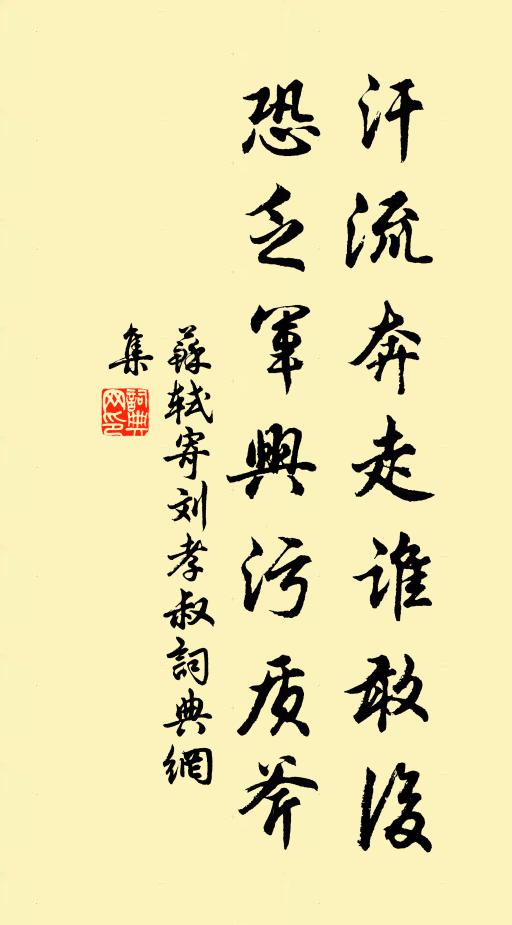 汗流奔走谁敢後
恐乏軍興污质斧
蘇轼寄刘孝叔詞典網
集
詞典
网印